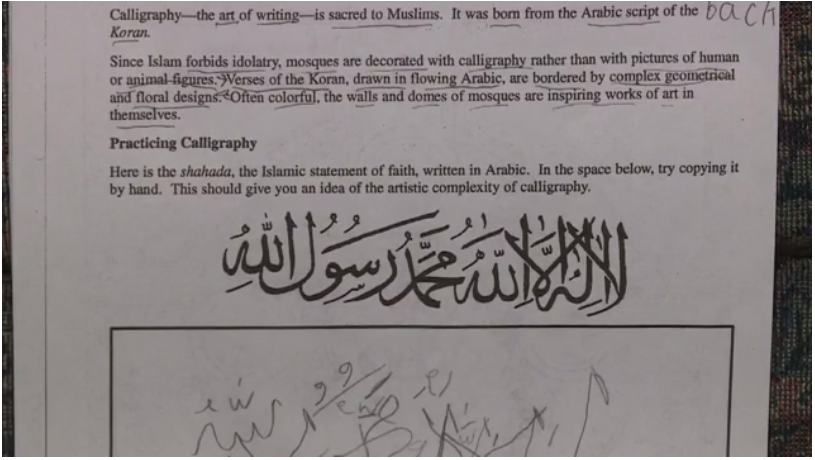 Calligraphy—the art of writing—is sacred to Muslims. It was born from the Arabic script of the back
Koran.
Since Islam forbids idolatry, mosques are decorated with calligraphy rather than with pictures of human
or animal figures. Verses of the Koran, drawn in flowing Arabic, are bordered by complex geometrical
and floral designs. Often colorful, the walls and domes of mosques are inspiring works of art in
themselves.
Practicing Calligraphy
Here is the shahada, the Islamic statement of faith, written in Arabic. In the space below, try copying it
by hand. This should give you an idea of the artistic complexity of calligraphy.
لا إله إلا الله محمد رسول الله